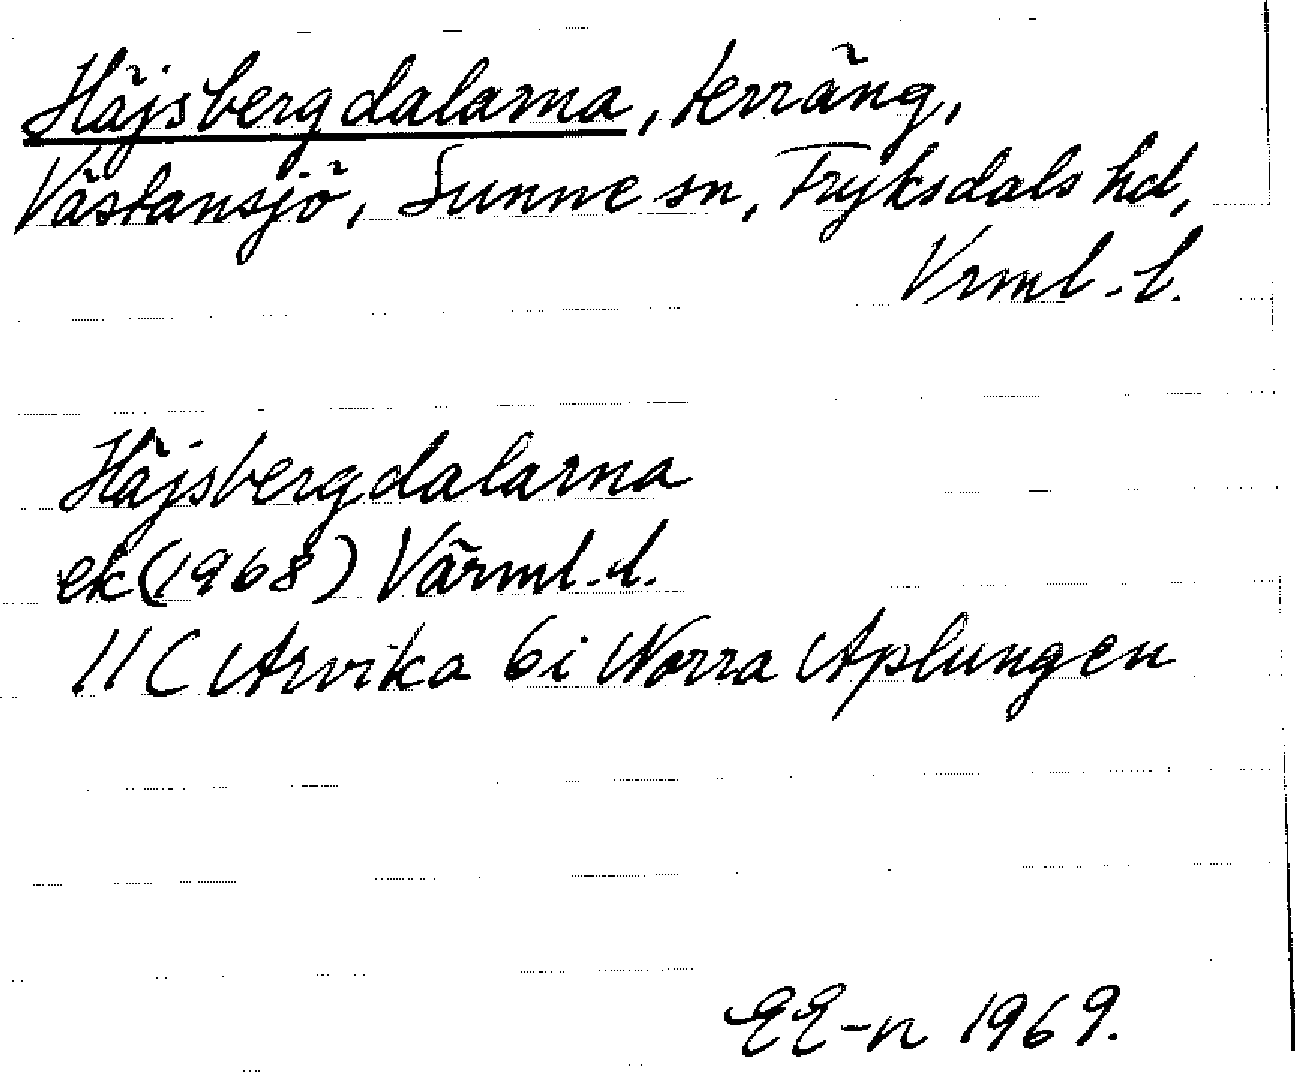 Häjsbergdalarna, terräng,
Västansjö, Sunne sn, Fryksdals hd,
Vrml.-l.
Häjsbergdalarna
ek (1968) Värml.-l.
11C Arvika 6i Norra Aplungen
EE-n 1969.